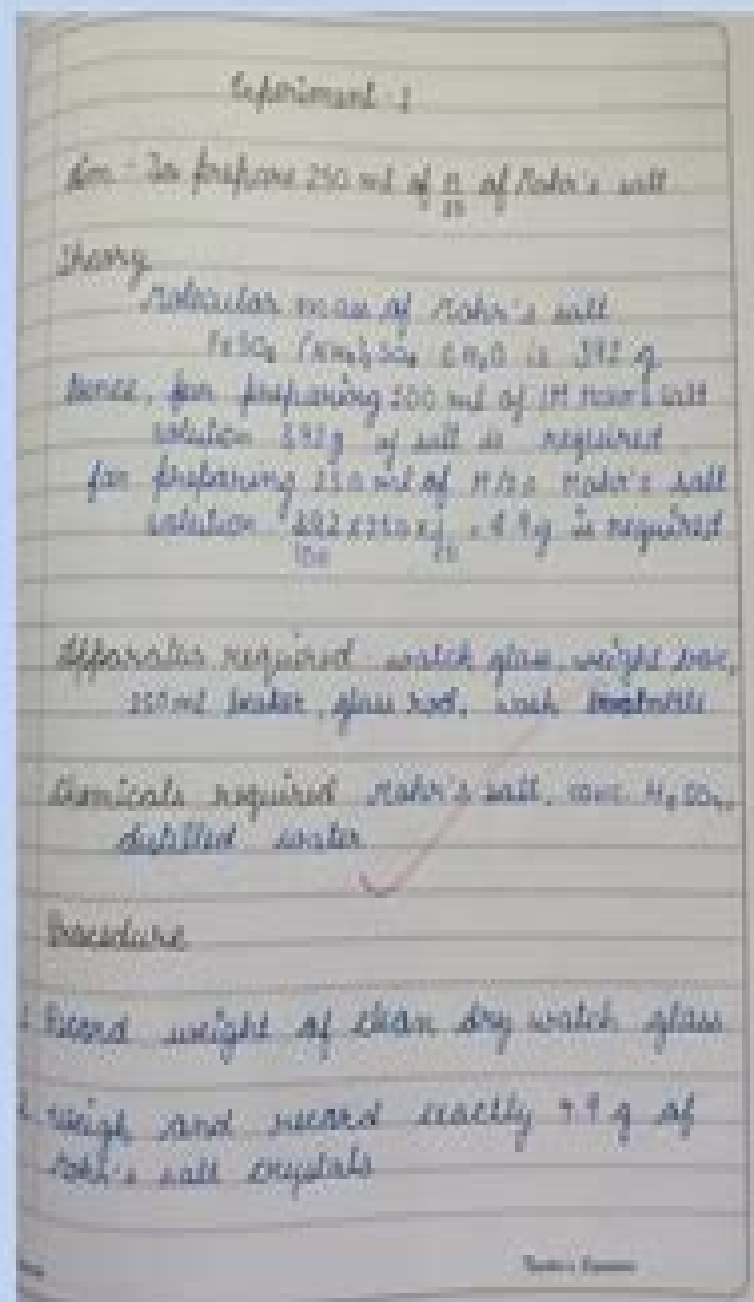 Experiment-1
Aim - To prepare 250 ml of M/20 of Mohr's salt
Theory
Molecular mass of Mohr's salt
FeSO4 (NH4)2SO4 6H2O is 392 g
Hence, for preparing ml of 1M Mohr's salt
solution 392g of salt is required
for preparing 250 ml of M/20 Mohr's salt
solution 392 x 250 x 1 = 4.9g is required
20
Apparatus required watch glass, weight box,
250 ml beaker, glass rod, wash
Chemicals required Mohr's salt, conc. H2SO4,
distilled water
Procedure
1. Record weight of clean dry watch glass
2. Weigh and record exactly 4.9 g of
Mohr's salt crystals